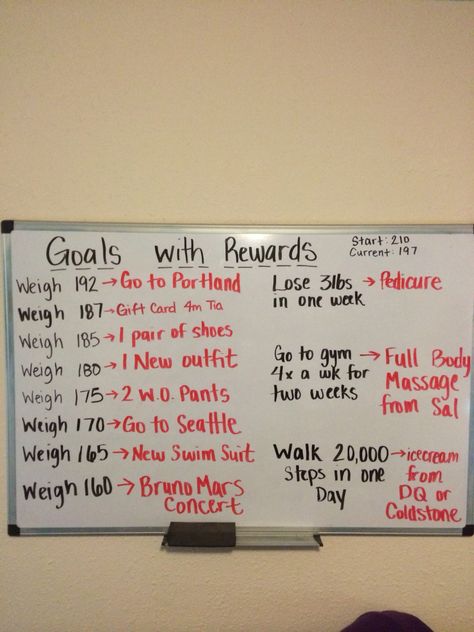 Goals with Rewards
Start: 210
Current: 197
Weigh 192 → Go to Portland
Weigh 187 → Gift Card 4m Tia
Weigh 185 → 1 pair of shoes
Weigh 180 → 1 New outfit
Weigh 175 → 2 W.O. Pants
Weigh 170 → Go to Seattle
Weigh 165 → New Swim Suit
Weigh 160 → Bruno Mars
Concert
Lose 3lbs → Pedicure
in one week
Go to gym → Full Body
4x a wk for Massage
two weeks from Sal
Walk 20,000 → icecream
Steps in one from
Day DQ or
Coldstone